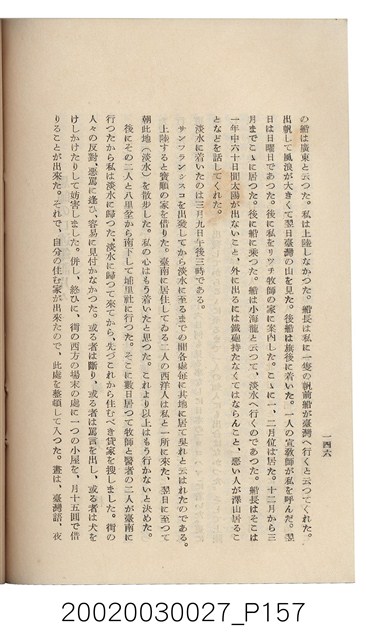 の船は廣東と云つた。私は上陸しなかつた。船長は私に一隻の帆前船が臺灣へ行くと云つてくれた。
出帆して風浪が大きくて翌日臺灣の山を見た。後船は旗後に着いた。一人の宣敎師が私を呼んだ。翌
日は日曜日であつた。後に私をリツチ牧師の家に案內した。こゝに一、二月位は居た。十二月から三
月までこゝに居つた。後に船に乘つた。船は小海龍と云つて、淡水へ行くのであつた。船長はそこは
一年中六十日間太陽が出ないこと、外に出るには鐵砲持たなくてはならんこと、惡い人が澤山居るこ
となどを話してくれた。
淡水に着いたのは三月九日午後三時である。
サンフランシスコを出發してから淡水に至るまでの間各處每に其地に居て吳れと云はれたのである。
上陸すると寶順の家を借りた。臺南に居住してゐる二人の西洋人は私と一所に來た、翌日に至つて
朝此地(淡水)を散步した。私の心はもう着いたと思つた。これより以上はもう行かないと決めた。
後にその二人と八里坌から南下して埔里社に行つた。そこに數日居つて牧師と醫者の二人が臺南に
行つたから私は淡水に歸つた、淡水に歸つて來てから、先づこれから住むべき貸家を搜しました。街の
人々の反對、惡罵に逢ひ、容易に見付かなかつた。或る者は斷り、或る者は罵言を出し、或る者は犬を
けしかけたりして妨害しました。併し、終ひに、街の西方の場末の處に一つの小屋を、月十五圓で借
りることが出來た。それで、自分の住む家が出來たので、此處を整頓して入つた。晝は、臺灣語、夜
一四六
20020030027_P157